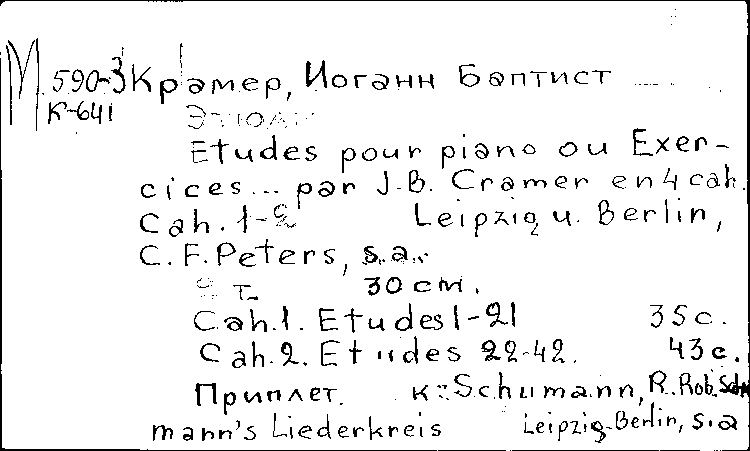 М 590-3 Крамер, Иоганн Баптист
К-641
Этюды
Etudes pour piano ou Exer-
cices... par J.B. Cramer en 4 cah.
Cah. 1-2 Leipzig u. Berlin,
C.F. Peters, s.a.
2 т. 30 cm.
Cah. 1. Etudes 1-21 35 c.
Cah. 2. Etudes 22-42. 43 c.
Приплет. к: Schumann, R. Rob. Schu
mann's Liederkreis Leipzig-Berlin, s.a